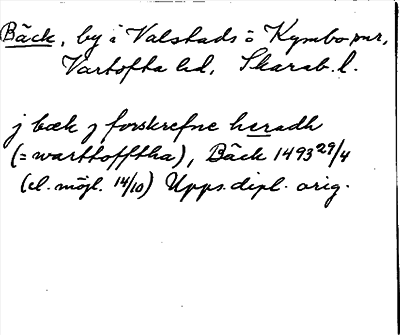 Bäck, by i Valstads o Kymbo snr,
Vartofta hd, Skarab. l.
j bæk j forskrefne heradh
(= warttofftha), Bäck 1493 29/4
(el. möjl. 14/10) Upps. dipl. orig.